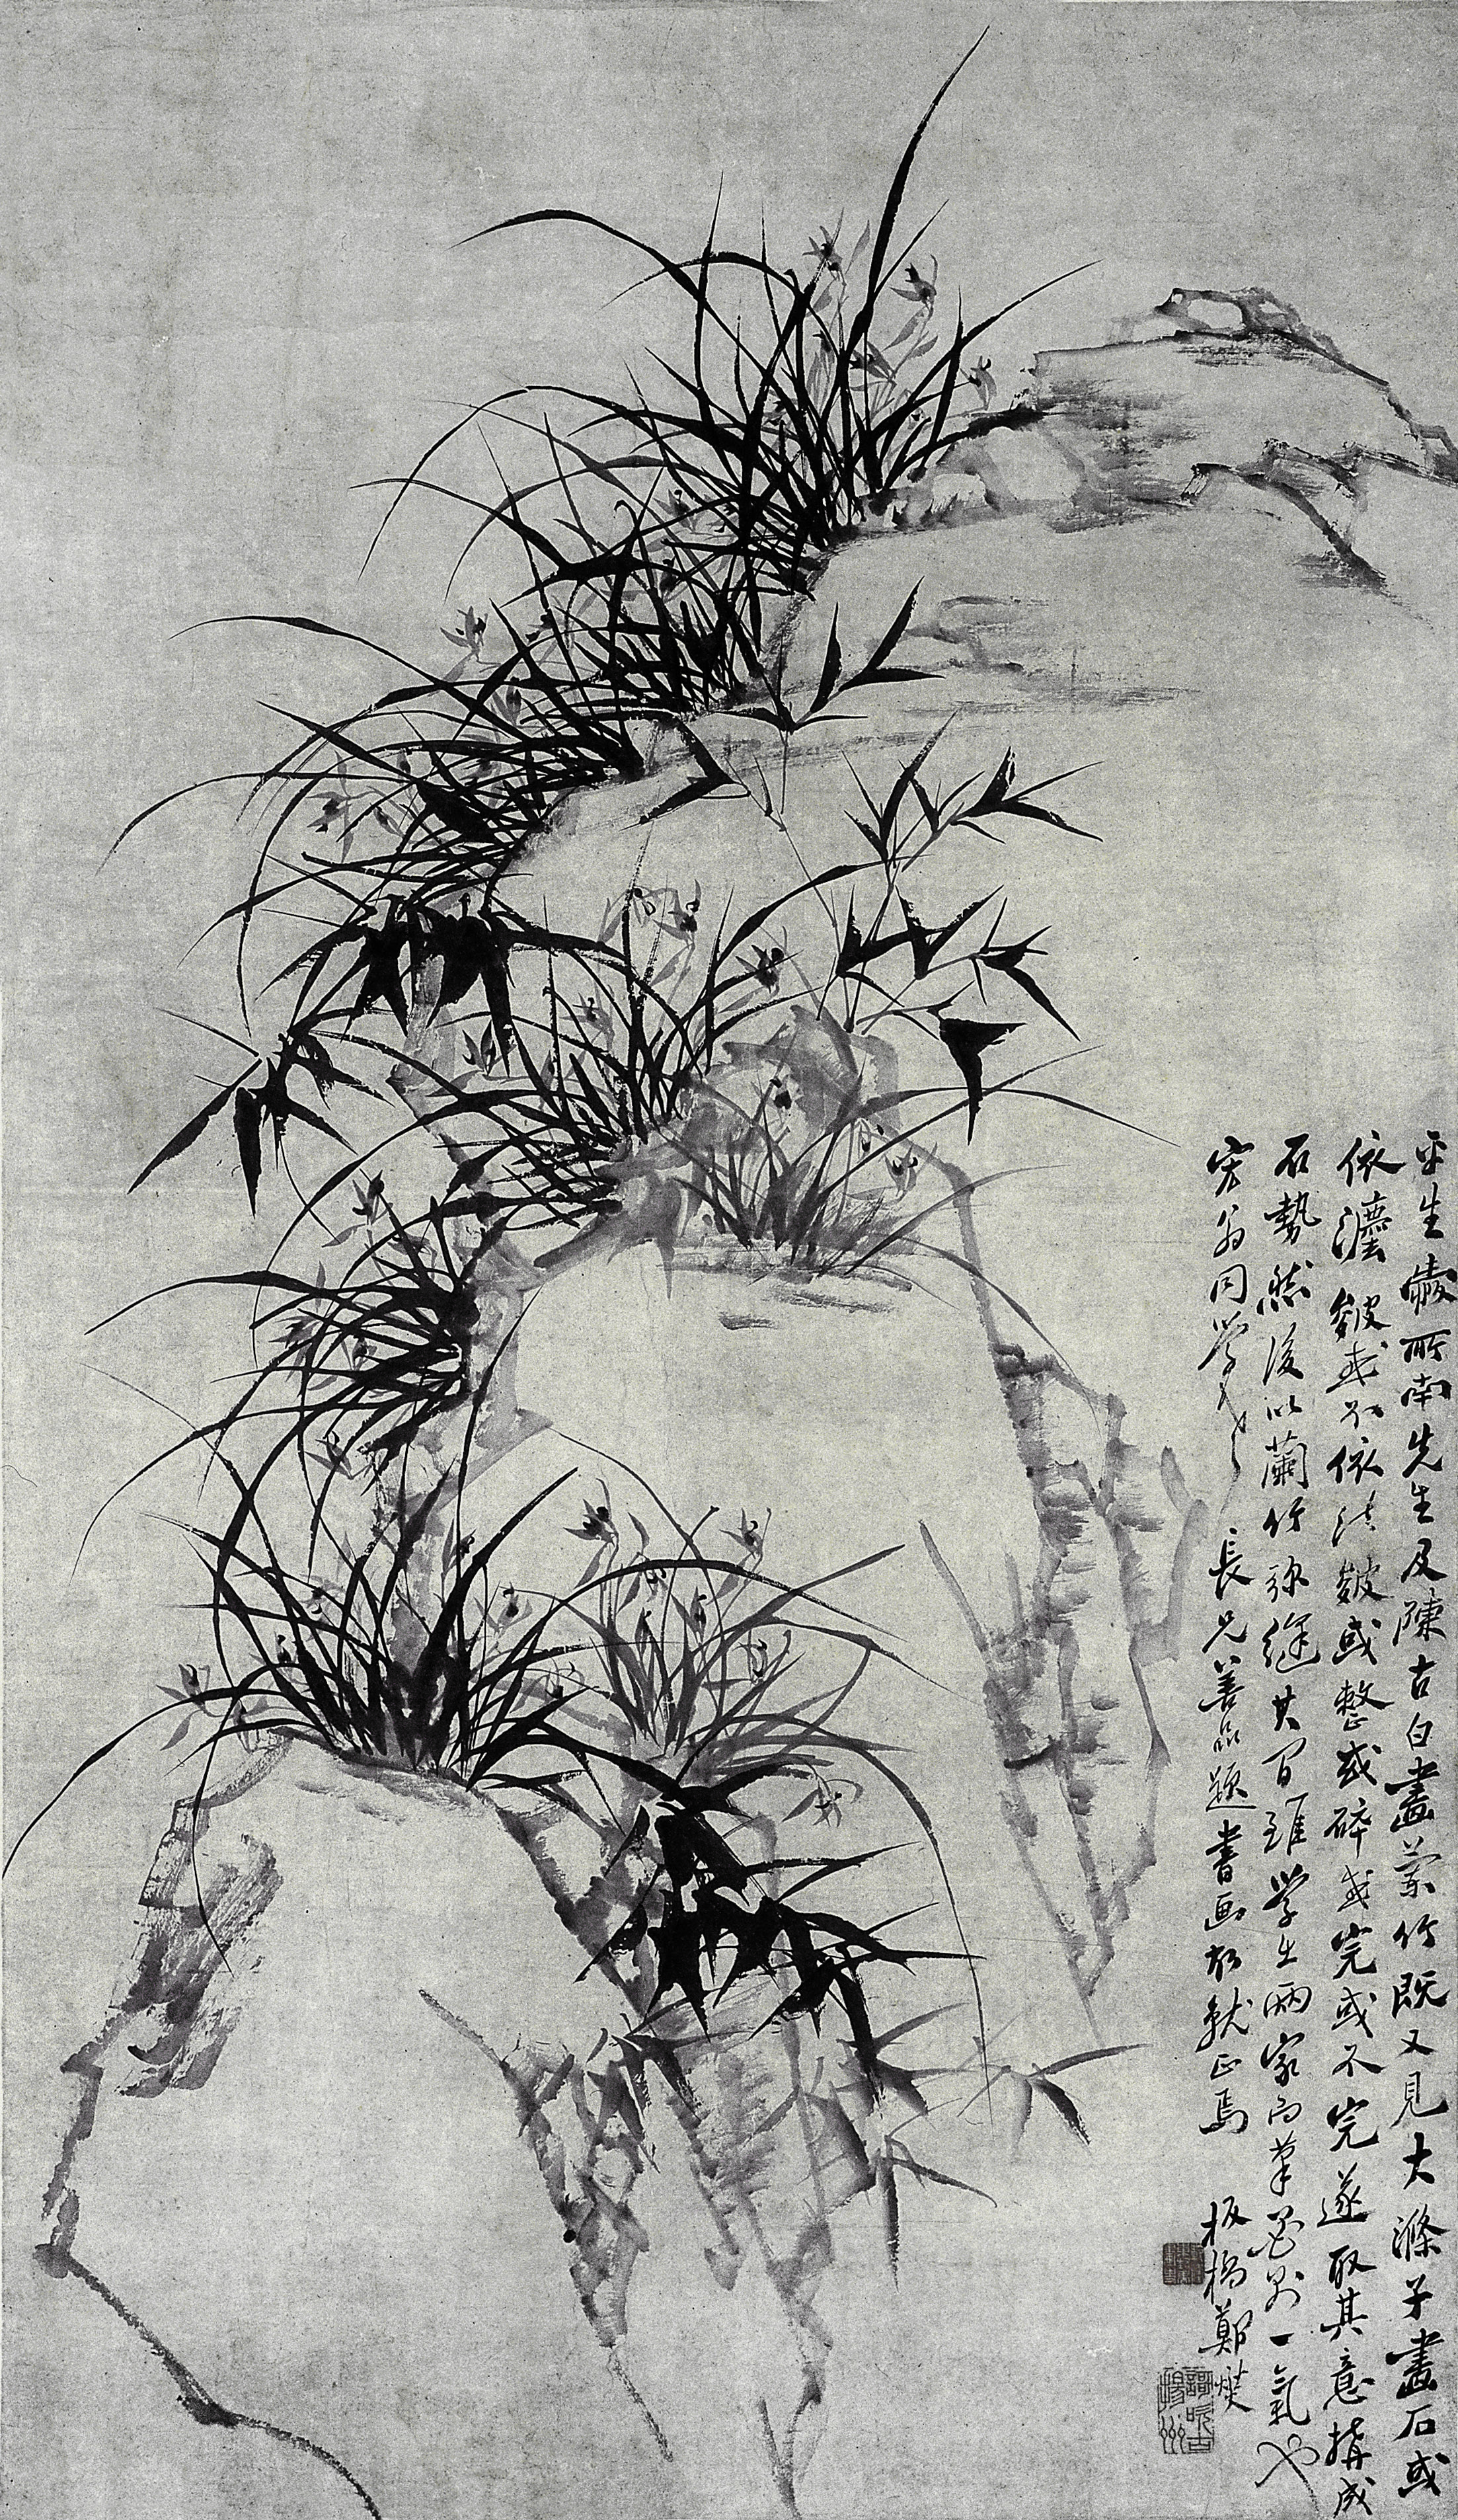 平生愛所南先生及陳古白畫蘭竹既又見大滌子畫石或
依灋皴或不依法皴或整或碎或完或不完遂取其意搆成
石勢然後以蘭竹弥縫其間雖學出兩家而筆墨則一氣也
宏翁同學老長兄善品題書画故就正焉 板橋鄭燮